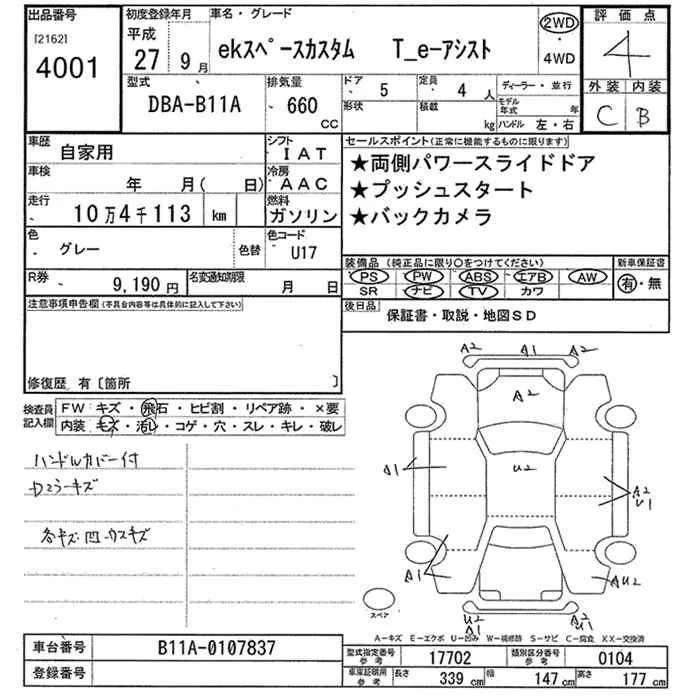 出品番号
[2162]
4001
初度登録年月
平成
27年 9月
車名・グレード
ekスペースカスタム T_e-アシスト
2WD
・
4WD
評価点
4
外装 内装
C B
型式
DBA-B11A
排気量
660
CC
ドア
5
形状
定員
4人
積載
kg
ディーラー・並行
モデル年式 年
ハンドル 左・右
車歴
自家用
シフト
IAT
車検
年 月( 日)
冷房
AAC
走行
10万4千113 km
燃料
ガソリン
色
グレー
色替
色コード
U17
R券
9,190円
名変通知期限
月 日
セールスポイント(正常に機能するものに限ります)
★両側パワースライドドア
★プッシュスタート
★バックカメラ
装備品 (純正品に限り○をつけてください)
PS PW ABS エアB AW
SR ナビ TV カワ
新車保証書
有・無
後日品
保証書・取説・地図SD
注意事項申告欄(不具合内容等は具体的に記入して下さい)
修復歴 有〔箇所 〕
検査員記入欄
FW キズ・飛石・ヒビ割・リペア跡・×要
内装 キズ・汚れ・コゲ・穴・スレ・キレ・破レ
ハンドルカバー付
Dミラーキズ
各キズ・凹・ウスキズ
A2 A1 A2
A2
U2
A1
A2
U1
A1
AU2
U2
A1
スペア
A-キズ E-エクボ U-凹み W-補修跡 S-サビ C-腐食 XX-交換済
車台番号
B11A-0107837
登録番号
型式指定番号
参考
17702
類別区分番号
参考
0104
車庫証明用
参考
長さ 339 cm 幅 147 cm 高さ 177 cm